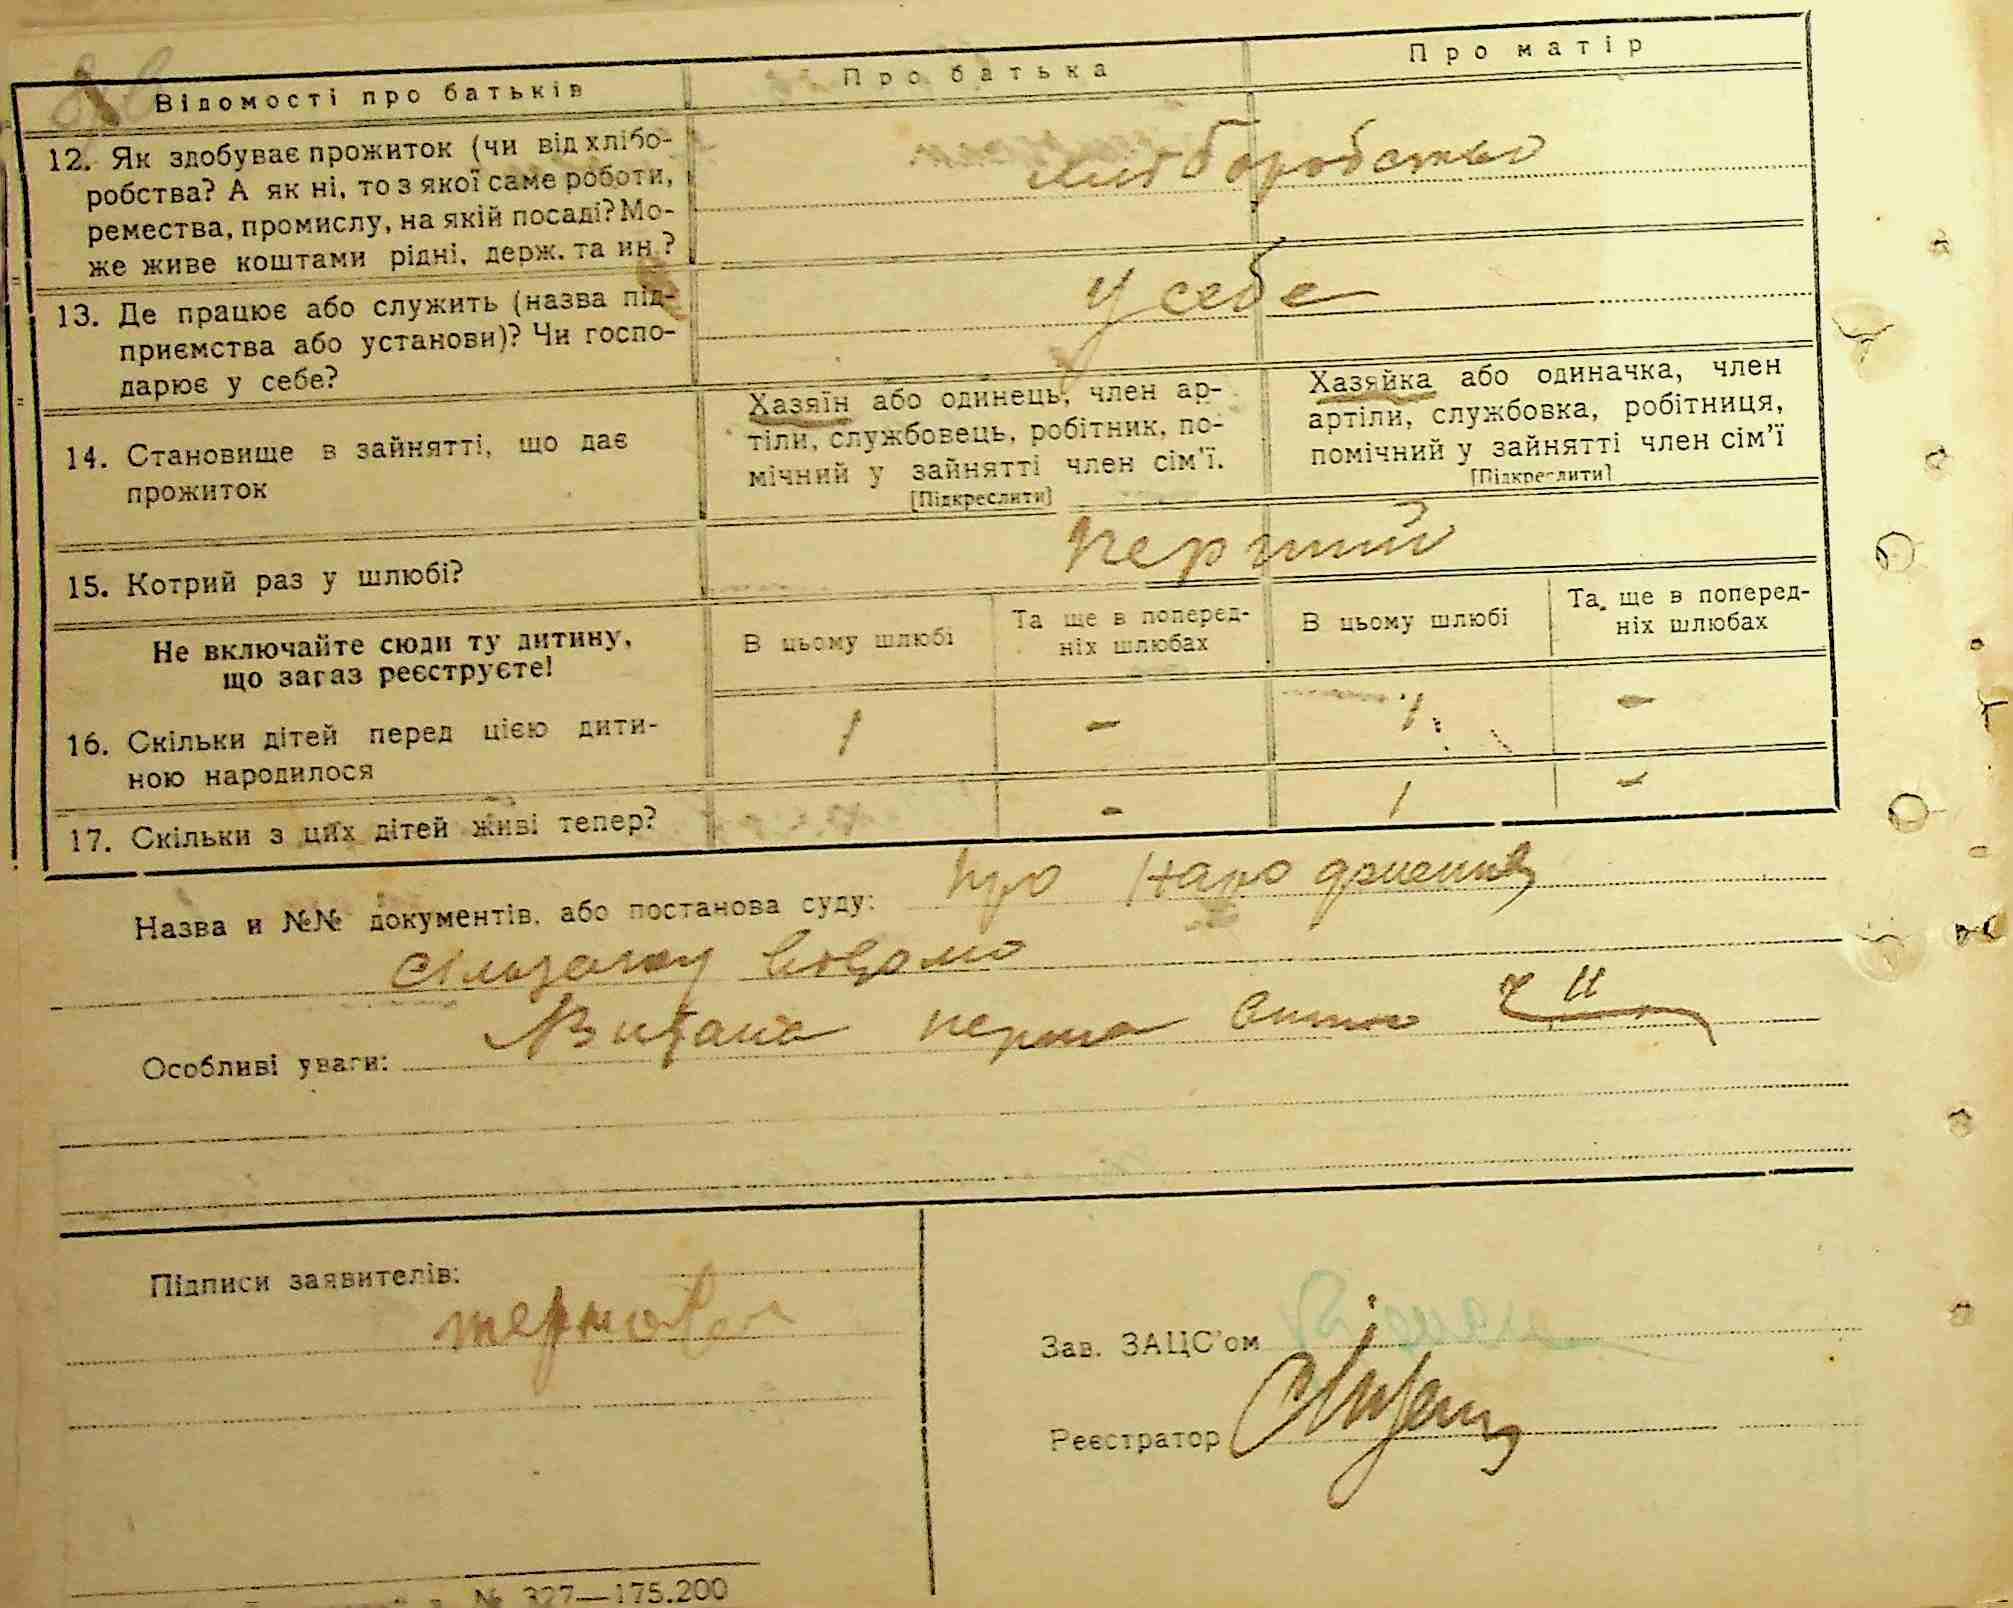 Відомості про батьків Про батька Про матір
12. Як здобуває прожиток (чи від хлібо-
робства? А як ні, то з якої саме роботи,
ремества, промислу, на якій посаді? Мо-
же живе коштами рідні, держ. та ин.?
хліборобство
13. Де працює або служить (назва під-
приємства або установи)? Чи госпо-
дарює у себе?
у себе
14. Становище в зайнятті, що дає
прожиток
Хазяїн або одинець, член ар-
тіли, службовець, робітник, по-
мічний у зайнятті член сім'ї.
[Підкреслити]
Хазяйка або одиначка, член
артіли, службовка, робітниця,
помічний у зайнятті член сім'ї
[Підкреслити]
15. Котрий раз у шлюбі?
перший
Не включайте сюди ту дитину,
що зараз реєструєте!
В цьому шлюбі
Та ще в поперед-
ніх шлюбах
В цьому шлюбі
Та ще в поперед-
ніх шлюбах
16. Скільки дітей перед цією дити-
ною народилося
1 - 1 -
17. Скільки з цих дітей живі тепер?
- 1 -
Назва и №№ документів, або постанова суду: про народження
відомо
Особливі уваги: Видана перша
Підписи заявителів:
Зав. ЗАЦС'ом
Реєстратор
№ 327—175.200